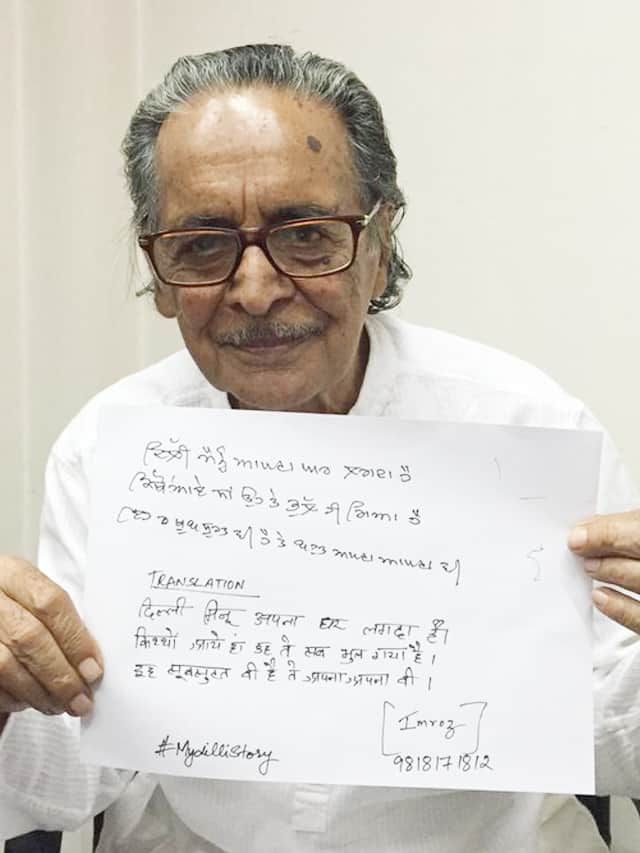 ਦਿੱਲੀ ਮੈਨੂੰ ਆਪਣਾ ਘਰ ਲਗਦਾ ਹੈ
ਕਿੱਥੋਂ ਆਏ ਸਾਂ ਉਹ ਤੇ ਭੁੱਲ ਹੀ ਗਿਆ ਹੈ
ਖੂਬਸੂਰਤ ਵੀ ਹੈ ਤੇ ਆਪਣਾ ਆਪਣਾ ਵੀ
TRANSLATION
दिल्ली मैनू अपना घर लगदा है।
किथ्थों आये हां ते सब भुल गया है।
इह खूबसूरत वी है ते अपना अपना वी।
[Imroz]
#MydilliStory
9818171812